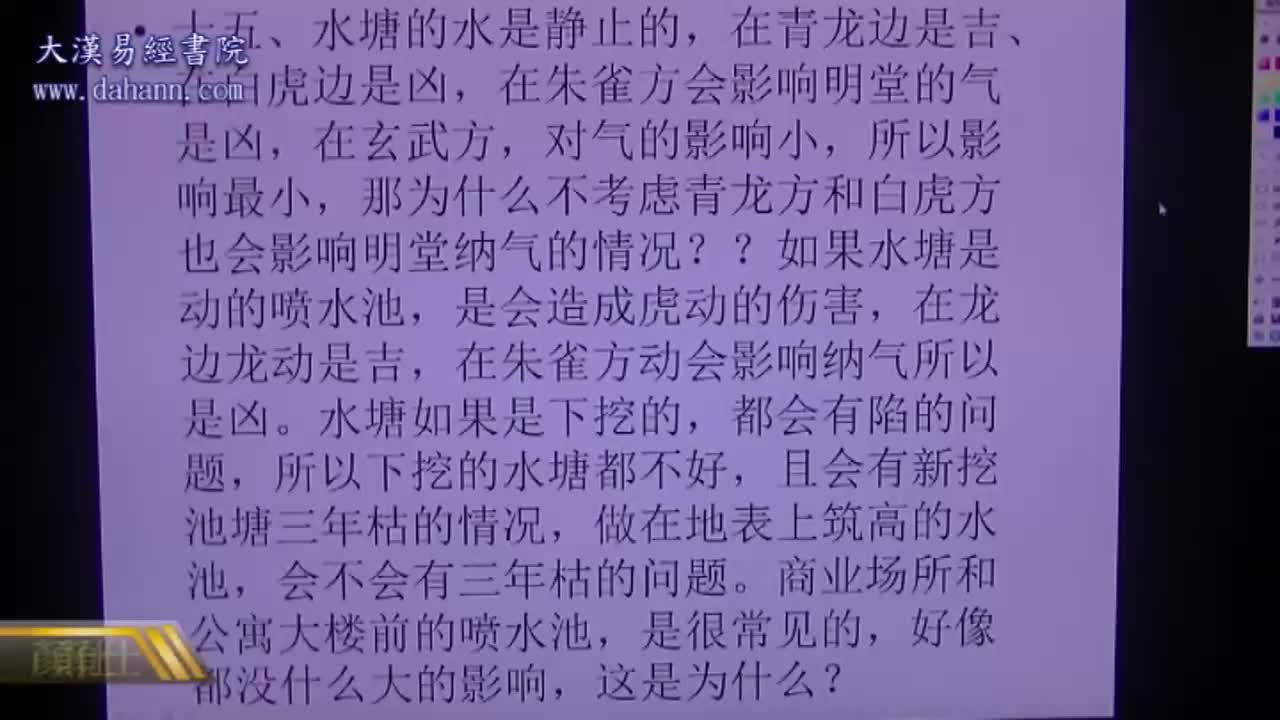 十五、水塘的水是静止的，在青龙边是吉、
在白虎边是凶，在朱雀方会影响明堂的气
是凶，在玄武方，对气的影响小，所以影
响最小，那为什么不考虑青龙方和白虎方
也会影响明堂纳气的情况？？如果水塘是
动的喷水池，是会造成虎动的伤害，在龙
边龙动是吉，在朱雀方动会影响纳气所以
是凶。水塘如果是下挖的，都会有陷的问
题，所以下挖的水塘都不好，且会有新挖
池塘三年枯的情况，做在地表上筑高的水
池，会不会有三年枯的问题。商业场所和
公寓大楼前的喷水池，是很常见的，好像
都没什么大的影响，这是为什么？
大漢易經書院
www.dahann.com
顏仕